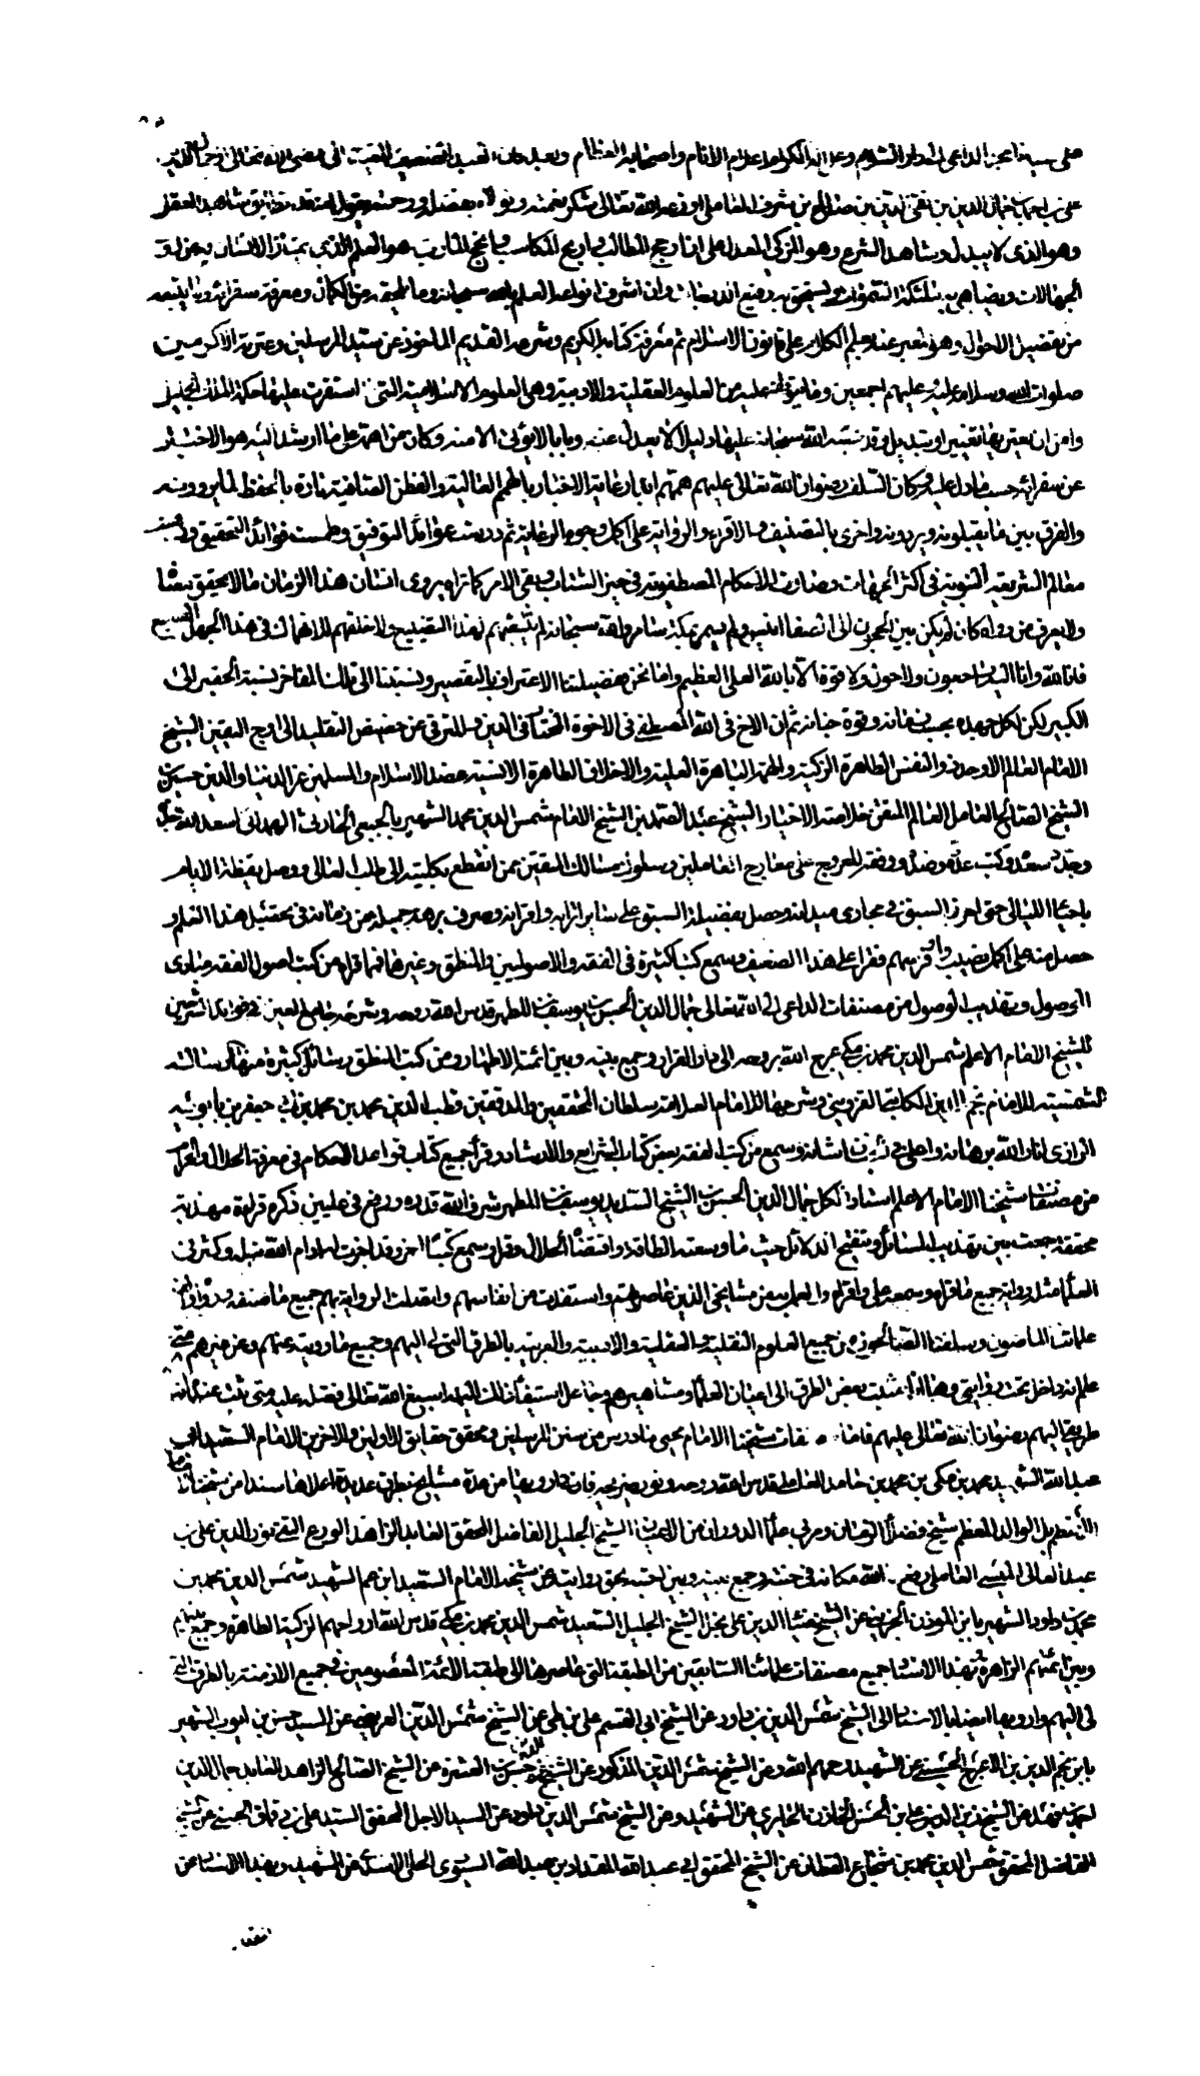 على سيدنا محمد الداعي الى دار السلام وعلى اله الكرام اعلام الانام واصحابه العظام وبعد فان العبد الضعيف الفقير الى الله تعالى
على بن احمد بن جمال الدين بن تقي الدين بن صالح بن مشرف العاملي اوزعه الله تعالى شكر نعمته بفضله ورحمته يقول شاهد العقل
وهو الذي لا يبدل وشاهد الشرع وهو المزكى المعدل على ان ارجح المطالب واربح المكاسب وانجح المآرب هو العلم الذي يمتاز الانسان به عن
الجهالات ويضاهي به ملائكة السموات ويستحق به رفيع الدرجات وان اشرف انواعه العلم بالله سبحانه وما يلحقه من الكمال ومعرفة سفرائه وما يتبعه
من تفصيل الاحوال وهو المعبر عنه بعلم الكلام على قانون الاسلام ثم معرفة كتابه الكريم وشرعه القديم الماخوذ عن سيد المرسلين وعترته الاكرمين
صلوات الله وسلامه عليه وعليهم اجمعين وما يتوقف عليه من العلوم العقلية والادبية وهي العلوم الاسلامية التي استقرت عليها حكمة الملك الجليل
وامن ان يعتريها تغيير او تبديل وقد نصب الله سبحانه عليها دليلا لا يعدل عنه وبابا لا يؤتى الا منه وكان من اهمه على ما ارشد اليه هو الاخبار
عن سفرائه حسب ما دل عليه وكان السلف رضوان الله تعالى عليهم همتهم ابدا رعاية الاخبار بالهمم العالية والفطن الصافية تارة بالحفظ لما يروونه
والفرق بين ما يقبلونه ويردونه واخرى بالتصنيف والاقراء والرواية على اكمل وجوه الرعاية ثم درست عوائد التوفيق وطمست فوائد التحقيق
معالم الشريعة النبوية في اكثر الجهات وصارت الاحكام المصطفوية في حيز الشتات وبقي الامر كما تراه يروي انسان هذا الزمان ما لا يحقق معناه
ولا يعرف من رواه كان لم يكن بين الحجون الى الصفا انيس ولم يسمر بمكة سامر
فانا لله وانا اليه راجعون ولا حول ولا قوة الا بالله العلي العظيم الاعتراف بالتقصير ونسبتنا الى تلك المفاخر نسبة الحقير الى
الكبير لكن لكل جهده بحسب زمانه وقوة جنانه ثم ان الاخ في الله المصطفى في الاخوة المختار في الدين والمترقي عن حضيض التقليد الى اوج اليقين الشيخ
الامام العالم الاوحد والنفس الطاهرة الزكية والهمة الباهرة العلية والاخلاق الطاهرة الانسية عضد الاسلام والمسلمين عز الدنيا والدين حسين بن
الشيخ الصالح العامل العالم المتقن خلاصة الاخيار الشيخ عبد الصمد بن الشيخ الامام شمس الدين محمد الشهير بالجبعي الحارثي الهمداني اسعد الله جده
وجدد سعده وكبت عدوه وضده ووفقه للعروج على معارج العاملين وسلوك مسالك المتقين ممن انقطع بكليته الى طلب المعالي ووصل يقظة الايام
باحياء الليالي حتى احرز السبق في مجاري ميدانه وحصل بفضيلة السبق على سائر اترابه واقرانه وصرف برهة جميلة من زمانه في تحصيل هذا العلم
وحصل منه على اكمل نصيب واوفر سهم فقرا على هذا الضعيف وسمع كتبا كثيرة في الفقه والاصولين والمنطق وغيرها فمما قراه من كتب اصول الفقه مبادي
الوصول وتهذيب الوصول من مصنفات الداعي الى الله تعالى جمال الدين الحسن بن يوسف بن المطهر قدس الله روحه وشرحه جامع البين في فوائد الشرحين
للشيخ الامام الاعلم شمس الدين محمد بن مكي عرج الله بروحه الى دار القرار وجمع بينه وبين ائمته الاطهار ومن كتب المنطق رسائل كثيرة منها الرسالة
الشمسية للامام نجم الدين الكاتبي القزويني وشرحها للامام العلامة سلطان المحققين والمدققين قطب الدين محمد بن محمد بن ابي جعفر بن بابويه
الرازي انار الله برهانه واعلى في الجنان شانه وسمع من كتب الفقه بعض كتاب الشرايع والارشاد وقرا جميع كتاب قواعد الاحكام في معرفة الحلال والحرام
من مصنفات شيخنا الامام الاعلم استاد الكل جمال الدين الحسن بن الشيخ السديد يوسف بن المطهر شرف الله قدره ورفع في عليين ذكره قراءة مهذبة
محققة جمعت بين تهذيب المسائل وتنقيح الدلائل حيث ما وسعته الطاقة واقتضاه الحال وقرا وسمع كتبا اخر وقد اجزت له ادام الله نبله وكثر في
العلماء مثله رواية جميع ما قراه وسمعه علي واقراه والعمل به عن مشايخي الذين عاصرتهم واستفدت من انفاسهم واتصلت الرواية بهم جميع ما صنفه ورواه
علماؤنا الماضون وسلفنا الصالحون من جميع العلوم النقلية والعقلية والادبية والعربية بالطرق التي لي اليهم وجميع ما رويته عنهم وعن غيرهم
علم انه داخل تحت روايتي وها انا اثبت بعض الطرق الى اعيان العلماء ومشاهيرهم اسبغ الله تعالى فضله عليه ومتى ثبت عنده انه
طريق اليهم رضوان الله تعالى عليهم فاما مصنفات شيخنا الامام محيي ما درس من سنن المرسلين ومحقق حقايق الاولين والاخرين الامام السعيد
عبد الله الشهيد محمد بن مكي بن محمد بن حامد العاملي قدس الله روحه ونور ضريحه فاني ارويها عن عدة مشايخ بطرق عديدة اعلاها سندا عن شيخنا
الوالد المعظم شيخ فضلاء الزمان ومربي علماء الدوران الشيخ الجليل الفاضل المحقق العابد الزاهد الورع التقي نور الدين علي بن
عبد العالي الميسي العاملي رفع الله مكانه في جنته وجمع بينه وبين احبته بحق روايته عن شيخه الامام السعيد ابن عم الشهيد شمس الدين محمد بن
محمد بن داود الشهير بابن المؤذن الجزيني عن الشيخ ضياء الدين علي نجل الشيخ الجليل السعيد شمس الدين محمد بن مكي قدس الله ارواحهم الزكية الطاهرة وجمع بينهم
وبين ائمتهم الزاهرة وبهذا الاسناد جميع مصنفات علمائنا السابقين من الطبقة التي عاصرها الى طبقة الائمة المعصومين في جميع الازمنة بالطرق التي
لي اليهم وارويها ايضا بالاسناد الى الشيخ شمس الدين بن داود عن الشيخ ابي القسم علي بن طي عن الشيخ شمس الدين العريضي عن السيد حسن بن ايوب الشهير
بابن نجم الدين بن الاعرج الحسيني عن الشهيد رحمهم الله وعن الشيخ شمس الدين المذكور عن الشيخ عز الدين حسن بن العشرة عن الشيخ الصالح الزاهد العابد جمال الدين
احمد بن فهد عن الشيخ زين الدين علي بن الحسن الخازن الحايري عن الشهيد وعن الشيخ شمس الدين داود عن السيد الاجل المحقق السيد علي بن دقماق الحسيني عن الشيخ
الفاضل المحقق شمس الدين محمد بن شجاع القطان عن الشيخ المحقق ابي عبد الله المقداد بن عبد الله السيوري الحلي الاسدي عن الشهيد وبهذا الاسناد عن